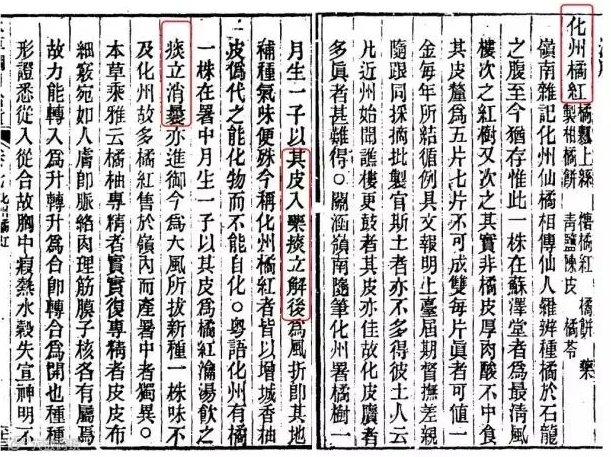 化州橘紅 橘瓤上絲 橘餅 藥
製柑橘餅 青鹽陳皮 橘苓
嶺南雜記化州仙橘相傳仙人羅辨種橘於石龍
之腹至今猶存惟此一株在蘇澤堂者為最清風
樓次之紅樹又次之其實非橘皮厚肉酸不中食
其皮釐為五片七片不可成雙每片眞者可值一
金每年所結循例具文報明上臺屆期督撫差親
隨跟同採摘批製官斯土者亦不多得彼土人云
凡近州始聞譙樓更鼓者其皮亦佳故化皮贋者
多眞者甚難得。關涵嶺南隨筆化州署橘樹一
月生一子以其皮入藥痰立解後為風折即其地
補種氣味便殊今稱化州橘紅者皆以增城香柚
皮僞代之能化物而不能自化。粵語化州有橘
一株在署中月生一子以其皮為橘紅瀹湯飲之
痰立消曩亦進御今為大風所拔新種一株味不
及化州故多橘紅售於嶺內而產署中者獨異。
本草乘雅云橘柚專精者實實復專精者皮皮布
細竅宛如人膚即脈絡肉理筋膜子核各有屬焉
故力能轉入為升轉升為合即轉合為開也種種
形證悉從入從合故胸中瘕熱水穀失宣神明不